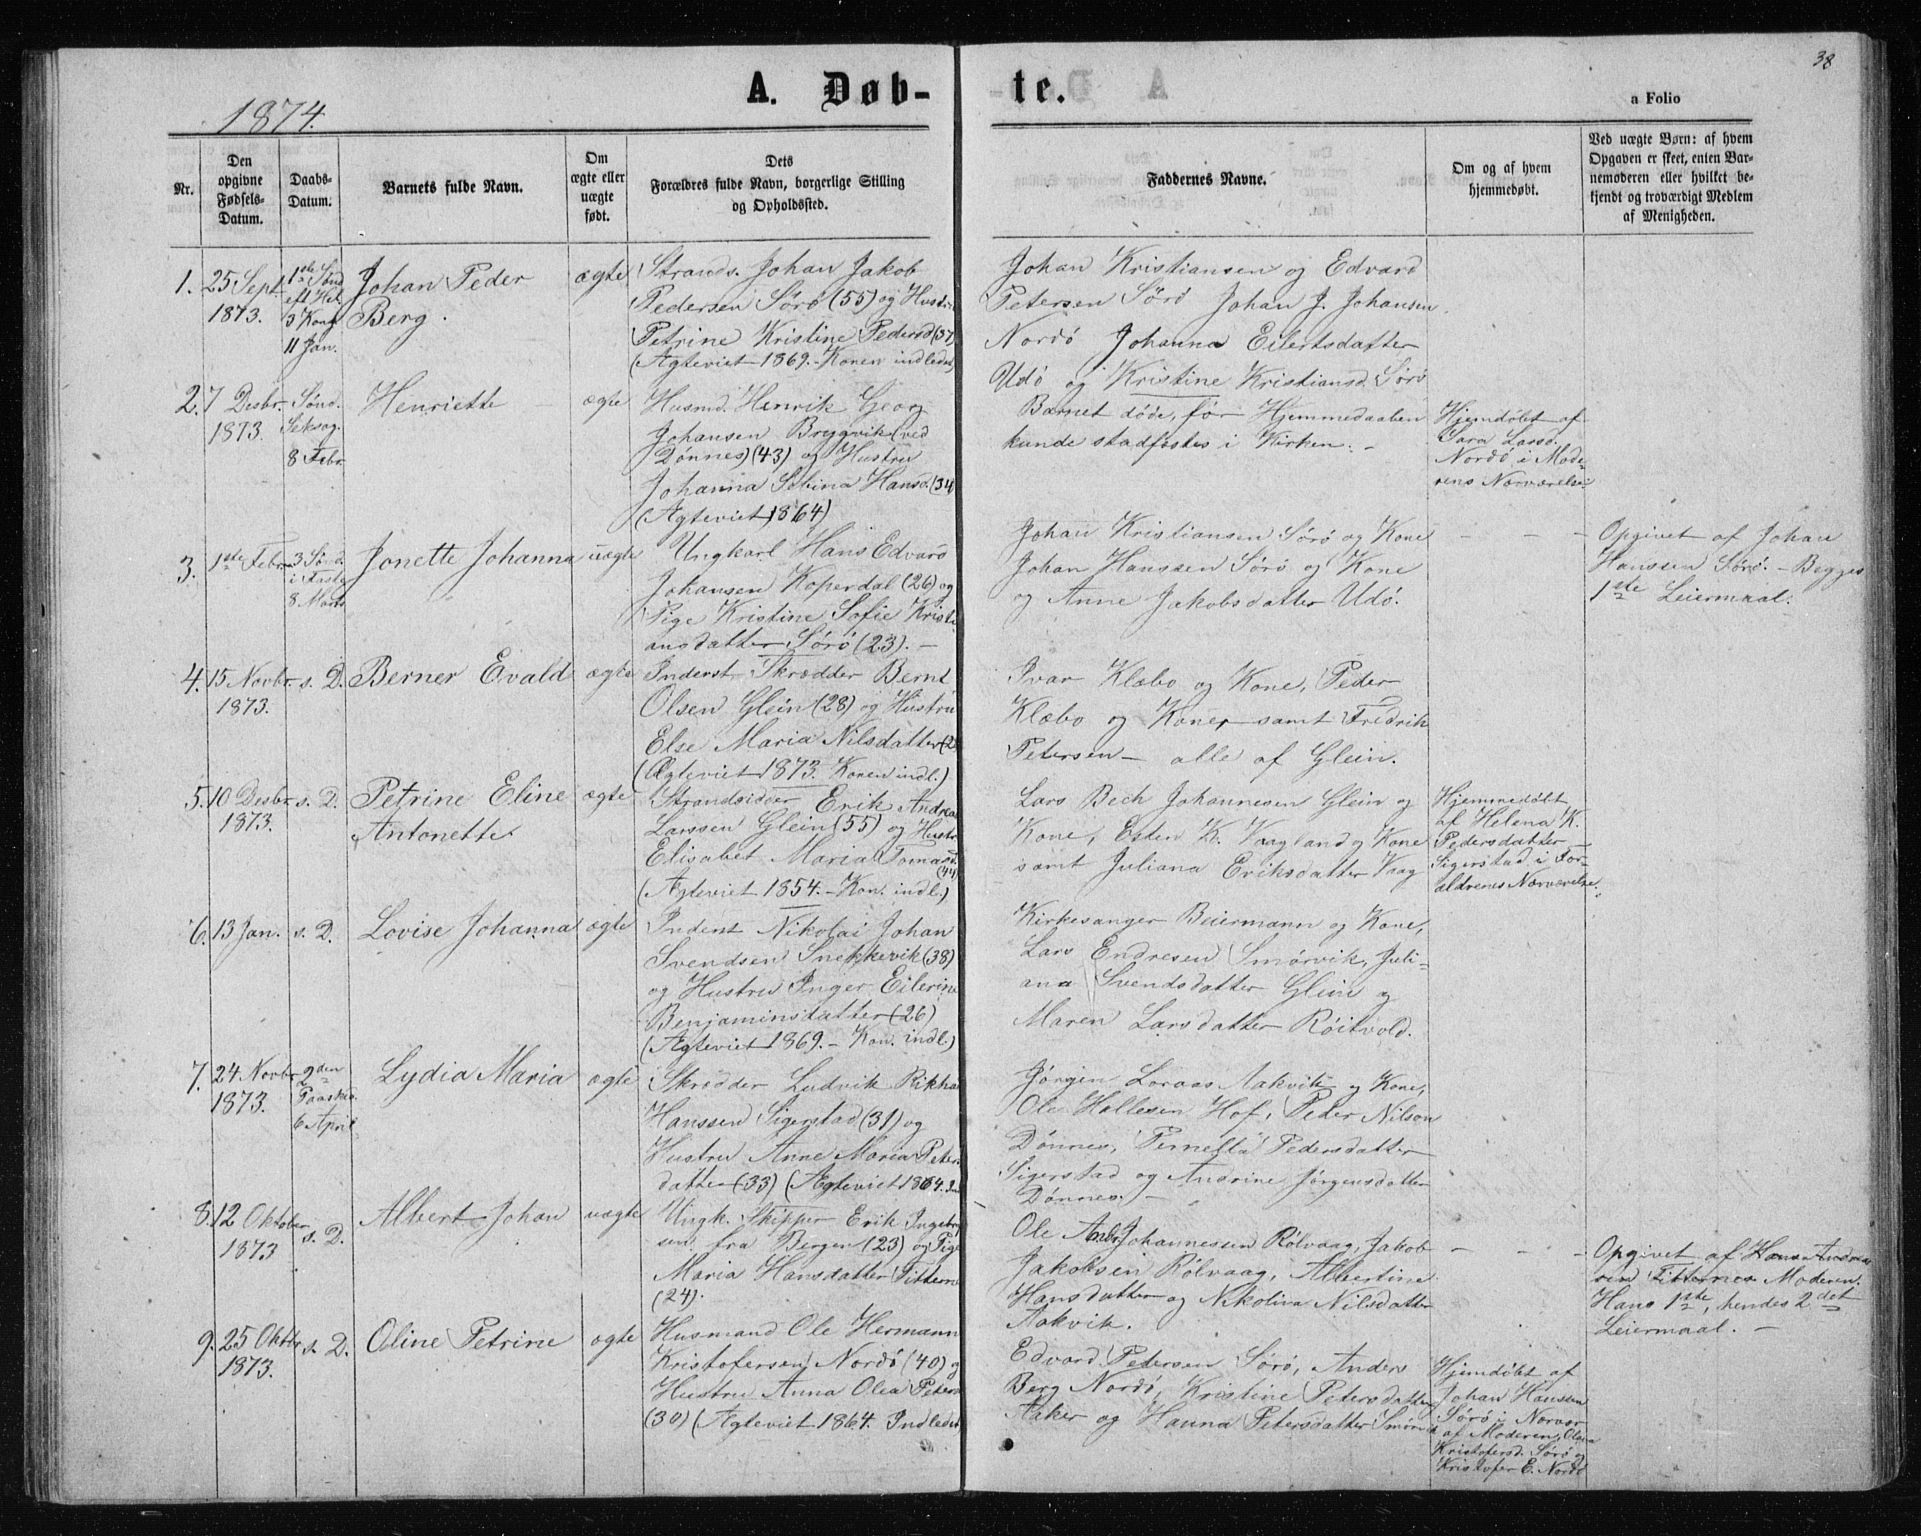 38
A. Døb-
te.
a Folio
1874.
Nr.
Den
opgivne
Fødsels-
Datum.
Daabs-
Datum.
Barnets fulde Navn.
Om
ægte eller
uægte
født.
Dets
Forældres fulde Navn, borgerlige Stilling
og Opholdssted.
Faddernes Navne.
Om og af hvem
hjemmedøbt.
Ved uægte Børn: af hvem
Opgaven er skeet, enten Bar-
nemoderen eller hvilket be-
kjendt og troværdigt Medlem
af Menigheden.
1.
25 Sept.
1873.
1ste Sønd
eft Hel.
3 Kong
11 Jan.
Johan Peder
Berg.
ægte
Strands. Johan Jakob
Pedersen Sørø (55) og Hustru
Petrine Kristine Pedersd (37)
(Ægteviet 1869. Konen indledet)
Johan Kristiansen og Edvard
Petersen Sørø Johan J. Johansen
Nordø, Johanna Eilertsdatter
Udø og Kristine Kristiansd. Sørø
2.
7 Desbr.
1873.
Sønd.
Seksag.
8 Febr.
Henriette
ægte
Husmd. Henrik Georg
Johansen Brygvik (ved
Dønnes) (43) og Hustru
Johanna Sebina Hansd. (34)
(Ægteviet 1864)
Barnet døde, før Hjemmedaaben
kunde stadfæstes i Kirken. -
Hjemdøbt af
Sara Lassd.
Nordø i Mode-
rens Nærværelse.
3.
1ste Febr.
3 Sønd.
i Faste
8 Marts
Jonette Johanna
uægte
Ungkarl Hans Edvard
Johansen Koperdal (26) og
Pige Kristine Sofie Kristi
ansdatter Sørø (23). -
Johan Kristiansen Sørø og Kone
Johan Hanssen Sørø og Kone
og Anne Jakobsdatter Udø.
- - -
Opgivet af Johan
Hanssen Sørø. - Begges
1ste Leiermaal.
4.
15 Novbr.
1873.
s. D.
Berner Evald
ægte
Inderst Skrædder Bernt
Olsen Glein (28) og Hustru
Else Maria Nilsdatter (2
(Ægteviet 1873. Konen indl.)
Ivar Klæbo og Kone, Peder
Klæbo og Kone, samt Fredrik
Petersen - alle af Glein.
5.
10 Desbr
1873.
s. D.
Petrine Eline
Antonette
ægte
Strandsidder Erik Andrea
Larssen Glein (55) og Hustr
Elisabet Maria Tomasd.
(44)
(Ægteviet 1854. - Kon. indl.)
Lars Bech Johannesen Glein og
Kone, Esten K. Vaagland og Kone
samt Juliana Eriksdatter Vaag
Hjemmedøbt
af Helena K.
Pedersdatter
Sigerstad i For-
ældrenes Nærværelse.
6.
13 Jan.
s. D.
Lovise Johanna
ægte
Inderst Nikolai Johan
Svendsen Snekkevik (38)
og Hustru Inger Eilerine
Benjaminsdatter (26)
(Ægteviet 1869. - Kon. indl.)
Kirkesanger Beiermann og Kone,
Lars Endresen Smørvik, Juli-
ana Svendsdatter Glein og
Maren Larsdatter Røitvold.
7.
24 Novbr
1873.
2den
Paaske.
6 April
Lydia Maria
ægte
Skrædder Ludvik Rikhar
Hanssen Sigerstad (31) og
Hustru Anne Maria Peter
datter (33) (Ægteviet 1864. Ind
Jørgen Loraas Aakvik og Kone,
Ole Hallesen Hof, Peder Nilson
Dønnes, Pernella Pedersdatter
Sigerstad og Andrine Jørgensdatter
Dønnes. -
8.
12 Oktober
1873
s. D.
Albert Johan
uægte
Ungk. Skipper Erik Ingebr
sen fra Bergen (23) og Pige
Maria Hansdatter Titterne
(24).
Ole Johannessen Rølvaag, Jakob
Jakobsen Rølvaag, Albertine
Hansdatter og Nikolina Nilsdatter
Aakvik.
- - -
Opgivet af Hans Andrea
sen Titternes Moderen.
Hans 1ste, hendes 2det
Leiermaal. -
9.
25 Oktbr
1873.
s. D.
Oline Petrine
ægte
Husmand Ole Hermann
Kristofersen Nordø (40) og
Hustru Anna Olea Peters
(30) (Ægteviet 1864. Indledet
Edvard Petersen Sørø, Anders
Berg Nordø, Kristine Petersdatter
Aaker og Hanna Petersdatter Smørvik
Hjemdøbt af
Johan Hansen
Sørø i Nærvær
af Moderen, Olava
Kristofersd. Sørø og
Kristofer E. Nordø